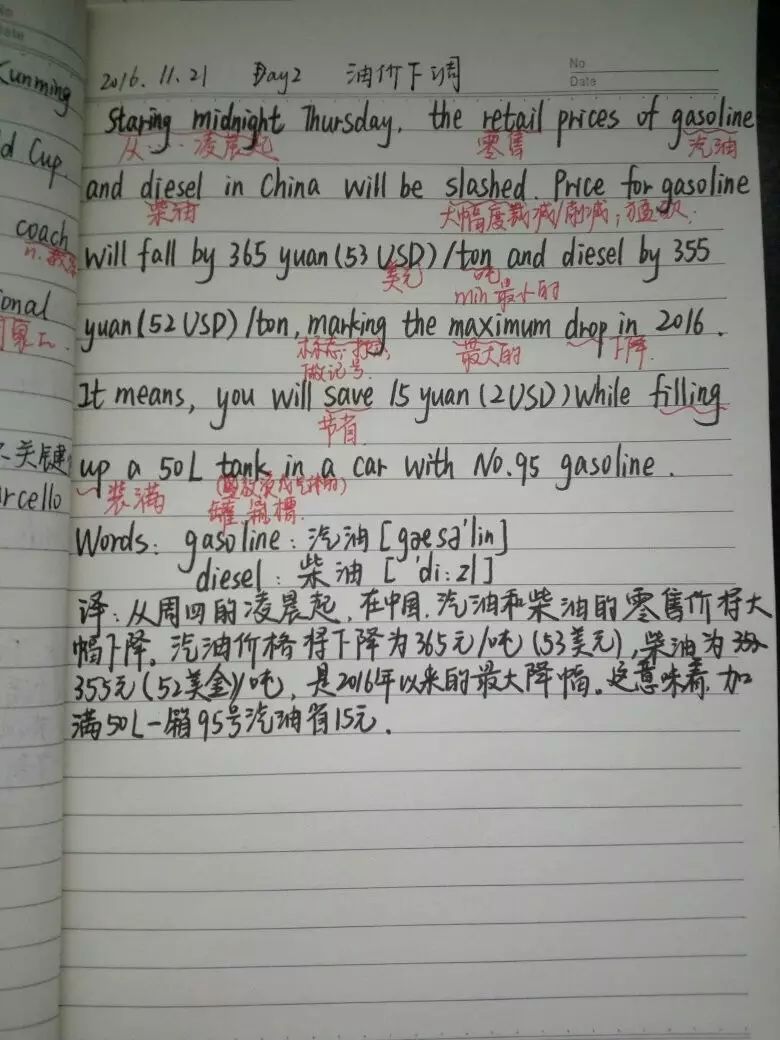 No
Date
No
Date
2016.11.21 Day2 油价下调
Kunming
Staring midnight Thursday, the retail prices of gasoline
从 凌晨起 零售 汽油
d Cup.
and diesel in China will be slashed. Price for gasoline
柴油 大幅度裁减/削减;
coach
will fall by 365 yuan(53 USD)/ton and diesel by 355
n. 美元 吨
min 最小的
ional
yuan(52 USD)/ton, marking the maximum drop in 2016.
标志; 最大的 下降
做记号
It means, you will save 15 yuan(2USD)while filling
节省
关键
up a 50L tank in a car with No.95 gasoline.
装满 罐 槽
rcello
Words: gasoline: 汽油 [gæsə'lin]
diesel: 柴油 ['di:zl]
译:从周四的凌晨起,在中国,汽油和柴油的零售价将大
幅下降。汽油价格将下降为365元/吨(53美元),柴油为
355元(52美金)/吨,是2016年以来的最大降幅。这意味着,加
满50L一箱95号汽油省15元.